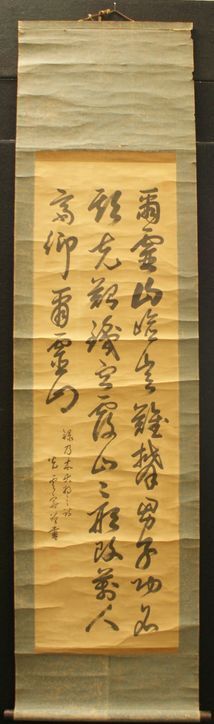 爾靈山嶮豈難攀男子功名
期克艱鐵血覆山々形改萬人
齊仰爾靈山
録乃木之詩
書